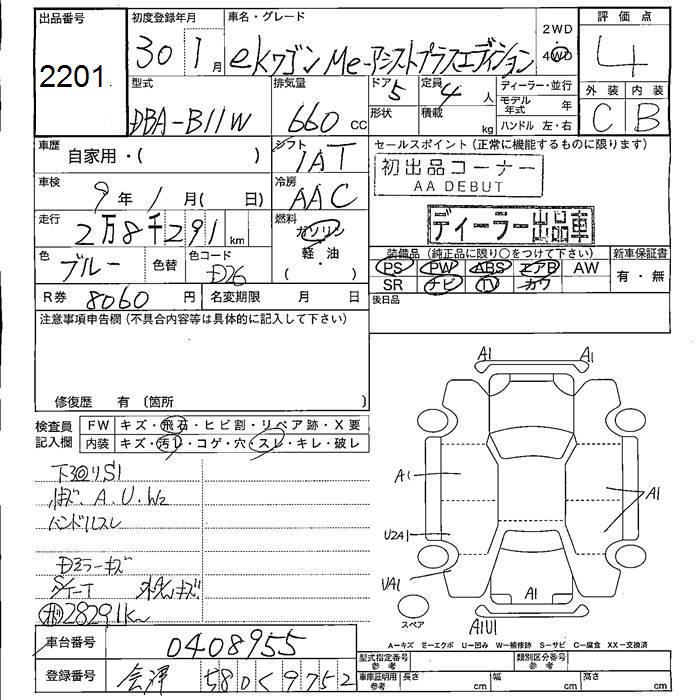 出品番号
2201
初度登録年月
30 1月
車名・グレード
eKワゴン Me-アシストプラスエディション
2WD
4WD
評価点
4
型式
DBA-B11W
排気量
660 cc
ドア
5
形状
定員
4人
積載
kg
ディーラー・並行
モデル年式 年
ハンドル 左・右
外装 内装
C B
車歴
自家用・( )
シフト
IAT
セールスポイント(正常に機能するものに限ります)
初出品コーナー
AA DEBUT
ディーラー出品車
車検
9年1月( 日)
冷房
AAC
走行
2万8千291km
燃料
ガソリン
軽・油
( )
色
ブルー
色替
色コード
D26
装備品(純正品に限り○をつけて下さい)
PS PW ABS エアB AW
SR ナビ TV カワ
新車保証書
有・無
R券 8060円
名変期限 月 日
後日品
注意事項申告欄(不具合内容等は具体的に記入して下さい)
修復歴 有〔箇所 〕
検査員記入欄
FW キズ・飛石・ヒビ割・リペア跡・X要
内装 キズ・汚れ・コゲ・穴・スレ・キレ・破レ
下回りS1
A.U.W2
ハンドルスレ
Dミラーキズ
28291K~
A1 A1
A1
A1
U2A1
UA1
A1
A1U1
スペア
A=キズ E=エクボ U=凹み W=補修跡 S=サビ C=腐食 XX=交換済
車台番号
0408955
登録番号
会津 580 く 9752
型式指定番号参考
類別区分番号参考
車庫証明用参考
長さ cm
幅 cm
高さ cm